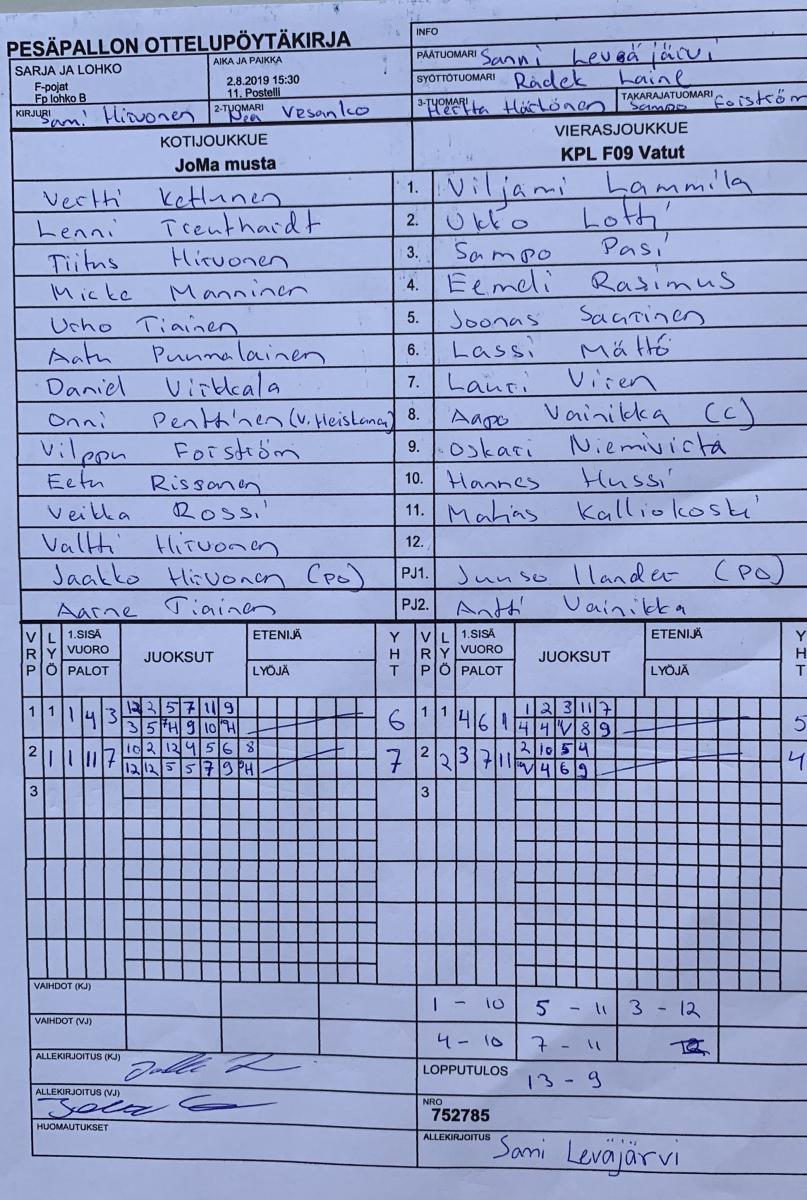 PESÄPALLON OTTELUPÖYTÄKIRJA
INFO
SARJA JA LOHKO
F-pojat
Fp lohko B
AIKA JA PAIKKA
2.8.2019 15:30
11. Postelli
PÄÄTUOMARI Sanni Leväjärvi
SYÖTTÖTUOMARI Radek Laine
KIRJURI Sami Hirvonen
2-TUOMARI Vesanko
3-TUOMARI Hertta Härkönen
TAKARAJATUOMARI Sampo Forström
KOTIJOUKKUE
JoMa musta
VIERASJOUKKUE
KPL F09 Vatut
Vertti Kettunen 1. Viljami Lammila
Lenni Treuthardt 2. Ukko Lotti
Tiitus Hirvonen 3. Sampo Pasi
Micke Manninen 4. Eemeli Rasimus
Urho Tiainen 5. Joonas Saarinen
Aatu Puumalainen 6. Lassi Mättö
Daniel Virkkala 7. Lauri Viren
Onni Penttinen (V. Heiskanen) 8. Aapo Vainikka (C)
Vilppu Forström 9. Oskari Niemivirta
Eetu Rissanen 10. Hannes Hussi
Veikka Rossi 11. Matias Kalliokoski
Valtti Hirvonen 12.
Jaakko Hirvonen (PO) PJ1. Juuso Ilander (PO)
Aarne Tiainen PJ2. Antti Vainikka
VRP LYÖ 1.SISÄ VUORO PALOT JUOKSUT ETENIJÄ LYÖJÄ YHT VRP LYÖ 1.SISÄ VUORO PALOT JUOKSUT ETENIJÄ LYÖJÄ YHT
1 1 1 4 3 12 2 5 7 11 9 6 1 1 4 6 1 1 2 3 11 7 5
3 5 H 9 10 H 4 4 V 8 9
2 1 1 11 7 10 2 12 4 5 6 8 7 2 2 3 7 11 2 10 5 4 4
12 12 5 5 7 9 H V 4 6 9
3 3
VAIHDOT (KJ) 1 - 10 5 - 11 3 - 12
VAIHDOT (VJ) 4 - 10 7 - 11
ALLEKIRJOITUS (KJ)
LOPPUTULOS 13 - 9
ALLEKIRJOITUS (VJ)
NRO
752785
HUOMAUTUKSET
ALLEKIRJOITUS Sani Leväjärvi